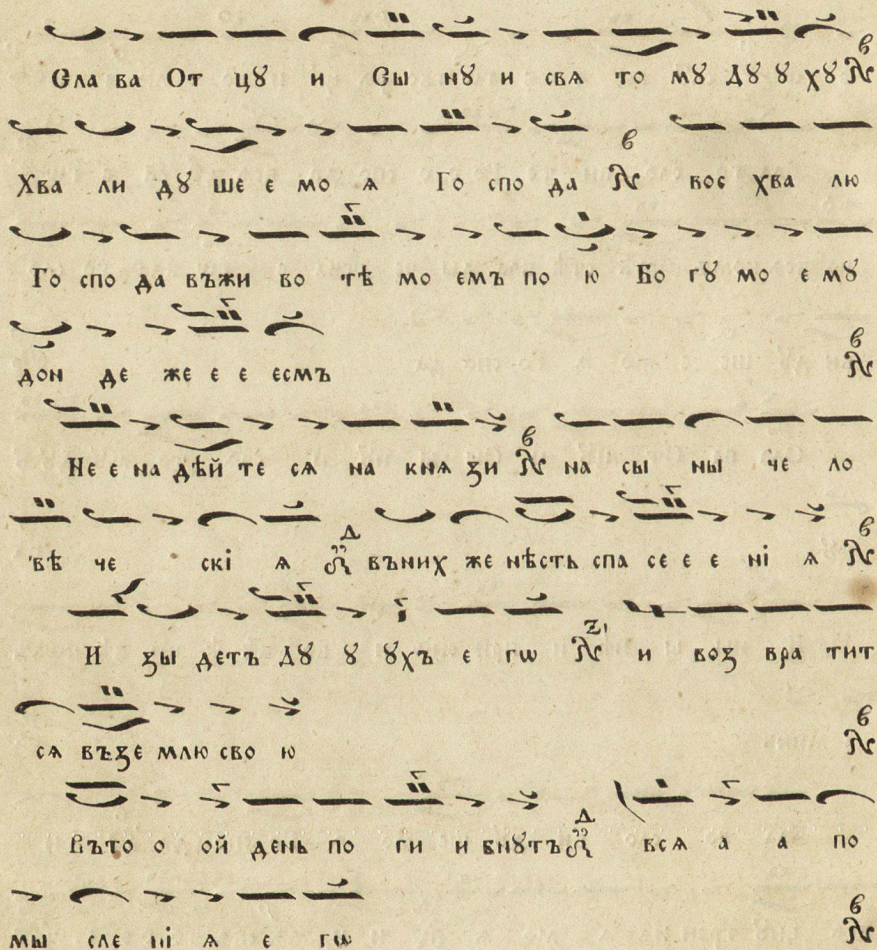 Сла ва От цꙋ и Сы нꙋ и свѧ то мꙋ Дꙋ ꙋ хꙋ
Хва ли дꙋ ше е мо ѧ Го спо да вос хва лю
Го спо да въжи во тѣ мо емъ по ю Бо гꙋ мо е мꙋ
дон де же е е есмъ
Не е на дѣй те сѧ на кнѧ ꙁи на сы ны че ло
вѣ че скі ѧ въних же нѣсть спа се е е ні ѧ
И ꙁы детъ Дꙋ ꙋ ꙋхъ е гѡ и воꙁ вра тит
сѧ въꙁе млю сво ю
Въто о ой день по ги и бнꙋтъ всѧ а а по
мы сле ні ѧ е гѡ